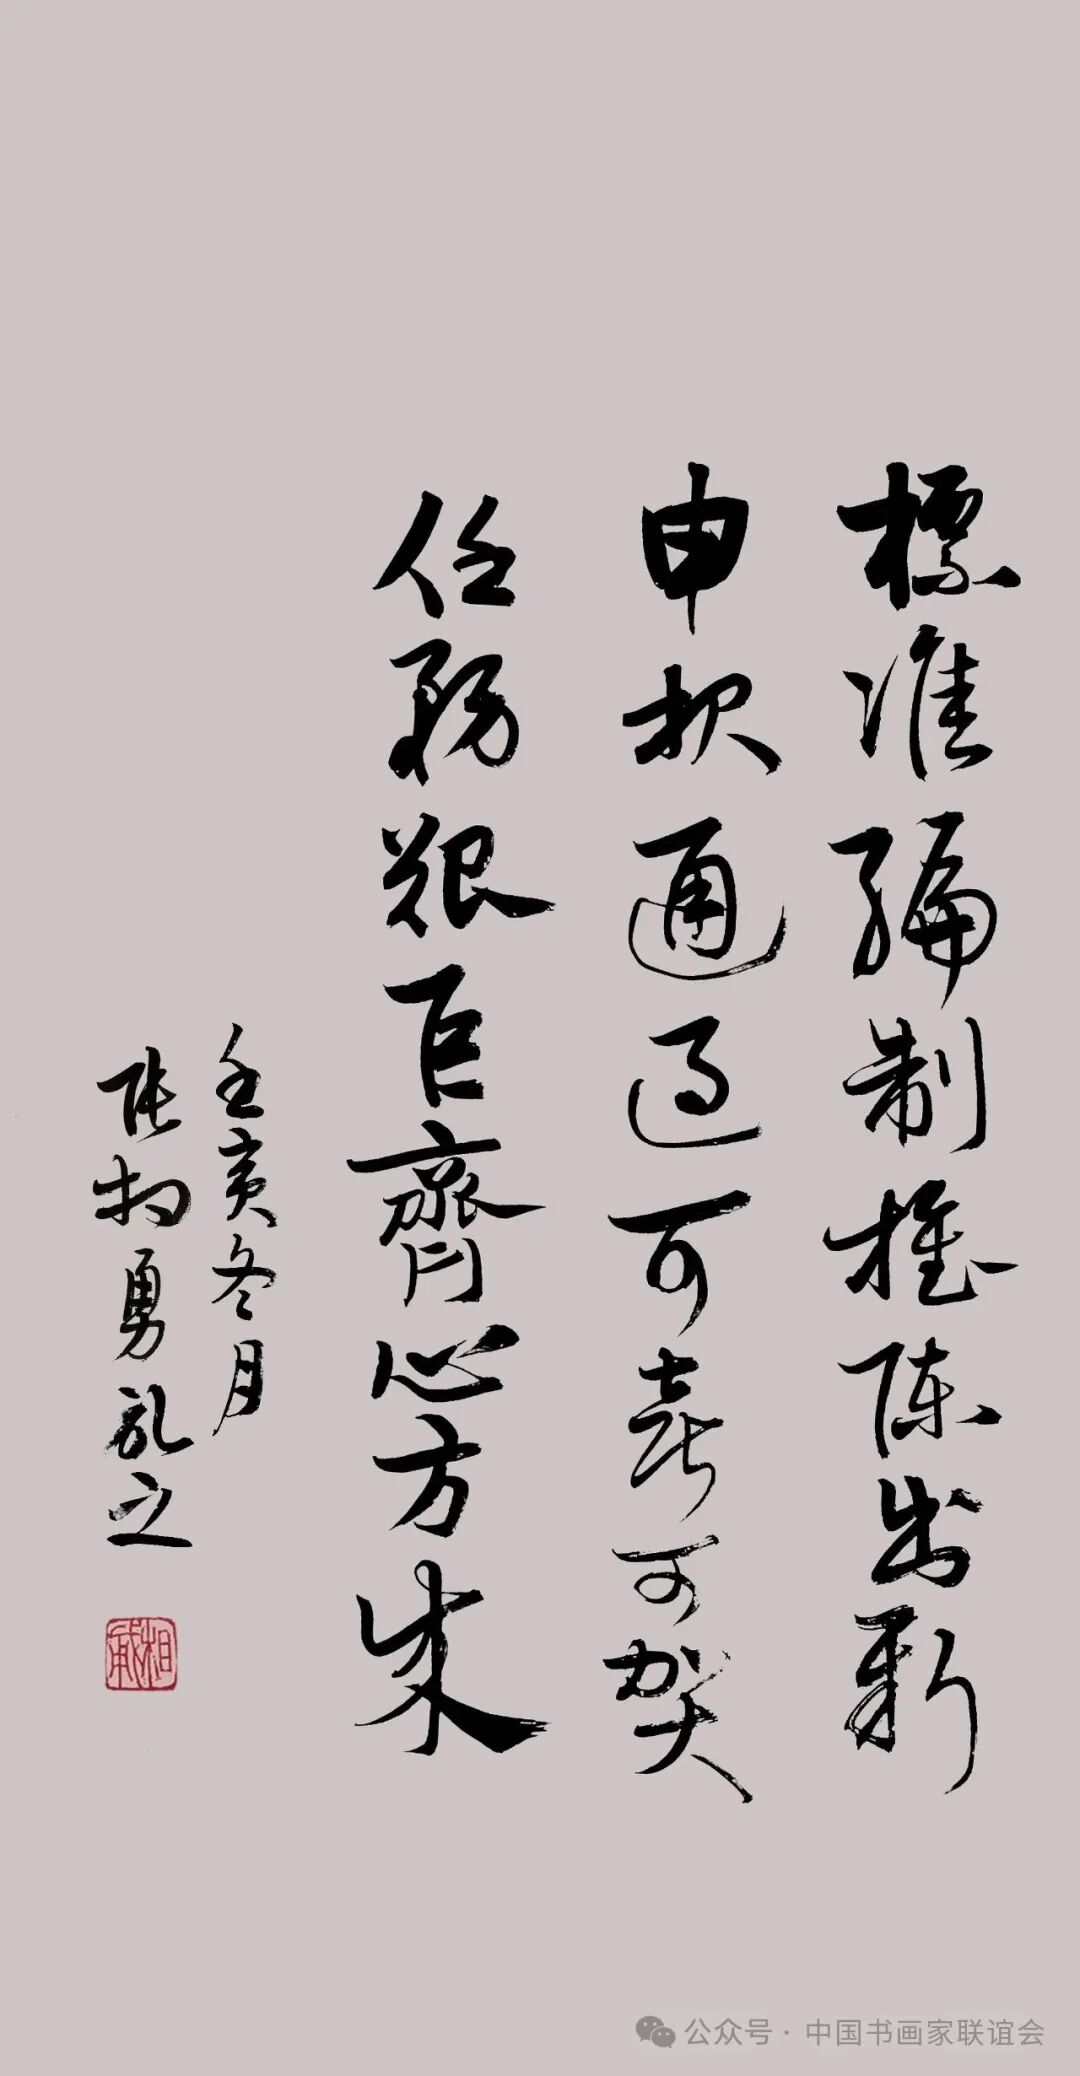 標准編制推陈出新
申报通过可喜可贺
任務艰巨齊心方成
壬寅冬月
张相勇之
公众号 · 中国书画家联谊会